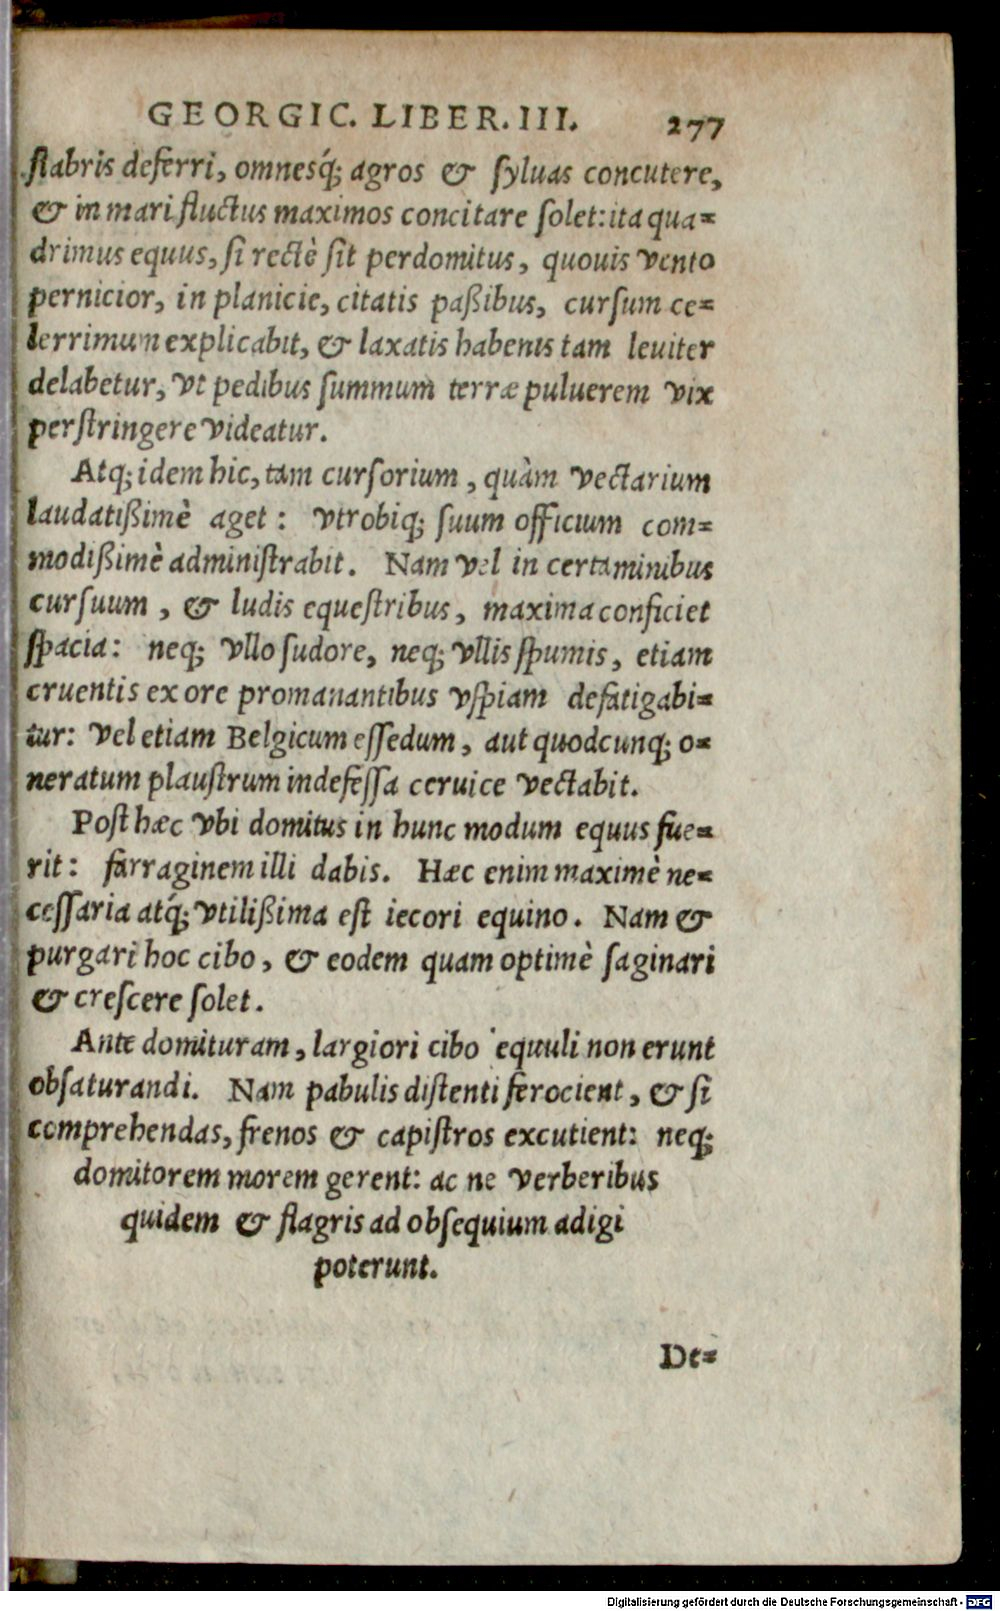 GEORGIC. LIBER. III. 277
flabris deferri, omnesq́; agros & ſyluas concutere,
& in mari fluctus maximos concitare ſolet: ita qua=
drimus equus, ſi rectè ſit perdomitus, quouis vento
pernicior, in planicie, citatis paßibus, curſum ce=
lerrimum explicabit, & laxatis habenis tam leuiter
delabetur, vt pedibus ſummum terræ puluerem vix
perſtringere videatur.
Atq; idem hic, tam curſorium, quàm vectarium
laudatißimè aget: vtrobiq; ſuum officium com=
modißimè adminiſtrabit. Nam vel in certaminibus
curſuum, & ludis equeſtribus, maxima conficiet
ſpacia: neq; vllo ſudore, neq; vllis ſpumis, etiam
cruentis ex ore promanantibus vſpiam defatigabi=
tur: vel etiam Belgicum eſſedum, aut quodcunq; o=
neratum plauſtrum indefeſſa ceruice vectabit.
Poſt hæc vbi domitus in hunc modum equus fue=
rit: farraginem illi dabis. Hæc enim maximè ne=
ceſſaria atq́; vtilißima eſt iecori equino. Nam &
purgari hoc cibo, & eodem quam optimè ſaginari
& creſcere ſolet.
Ante domituram, largiori cibo equuli non erunt
obſaturandi. Nam pabulis diſtenti ferocient, & ſi
comprehendas, frenos & capiſtros excutient: neq;
domitorem morem gerent: ac ne verberibus
quidem & flagris ad obſequium adigi
poterunt.
De=
Digitalisierung gefördert durch die Deutsche Forschungsgemeinschaft - DFG